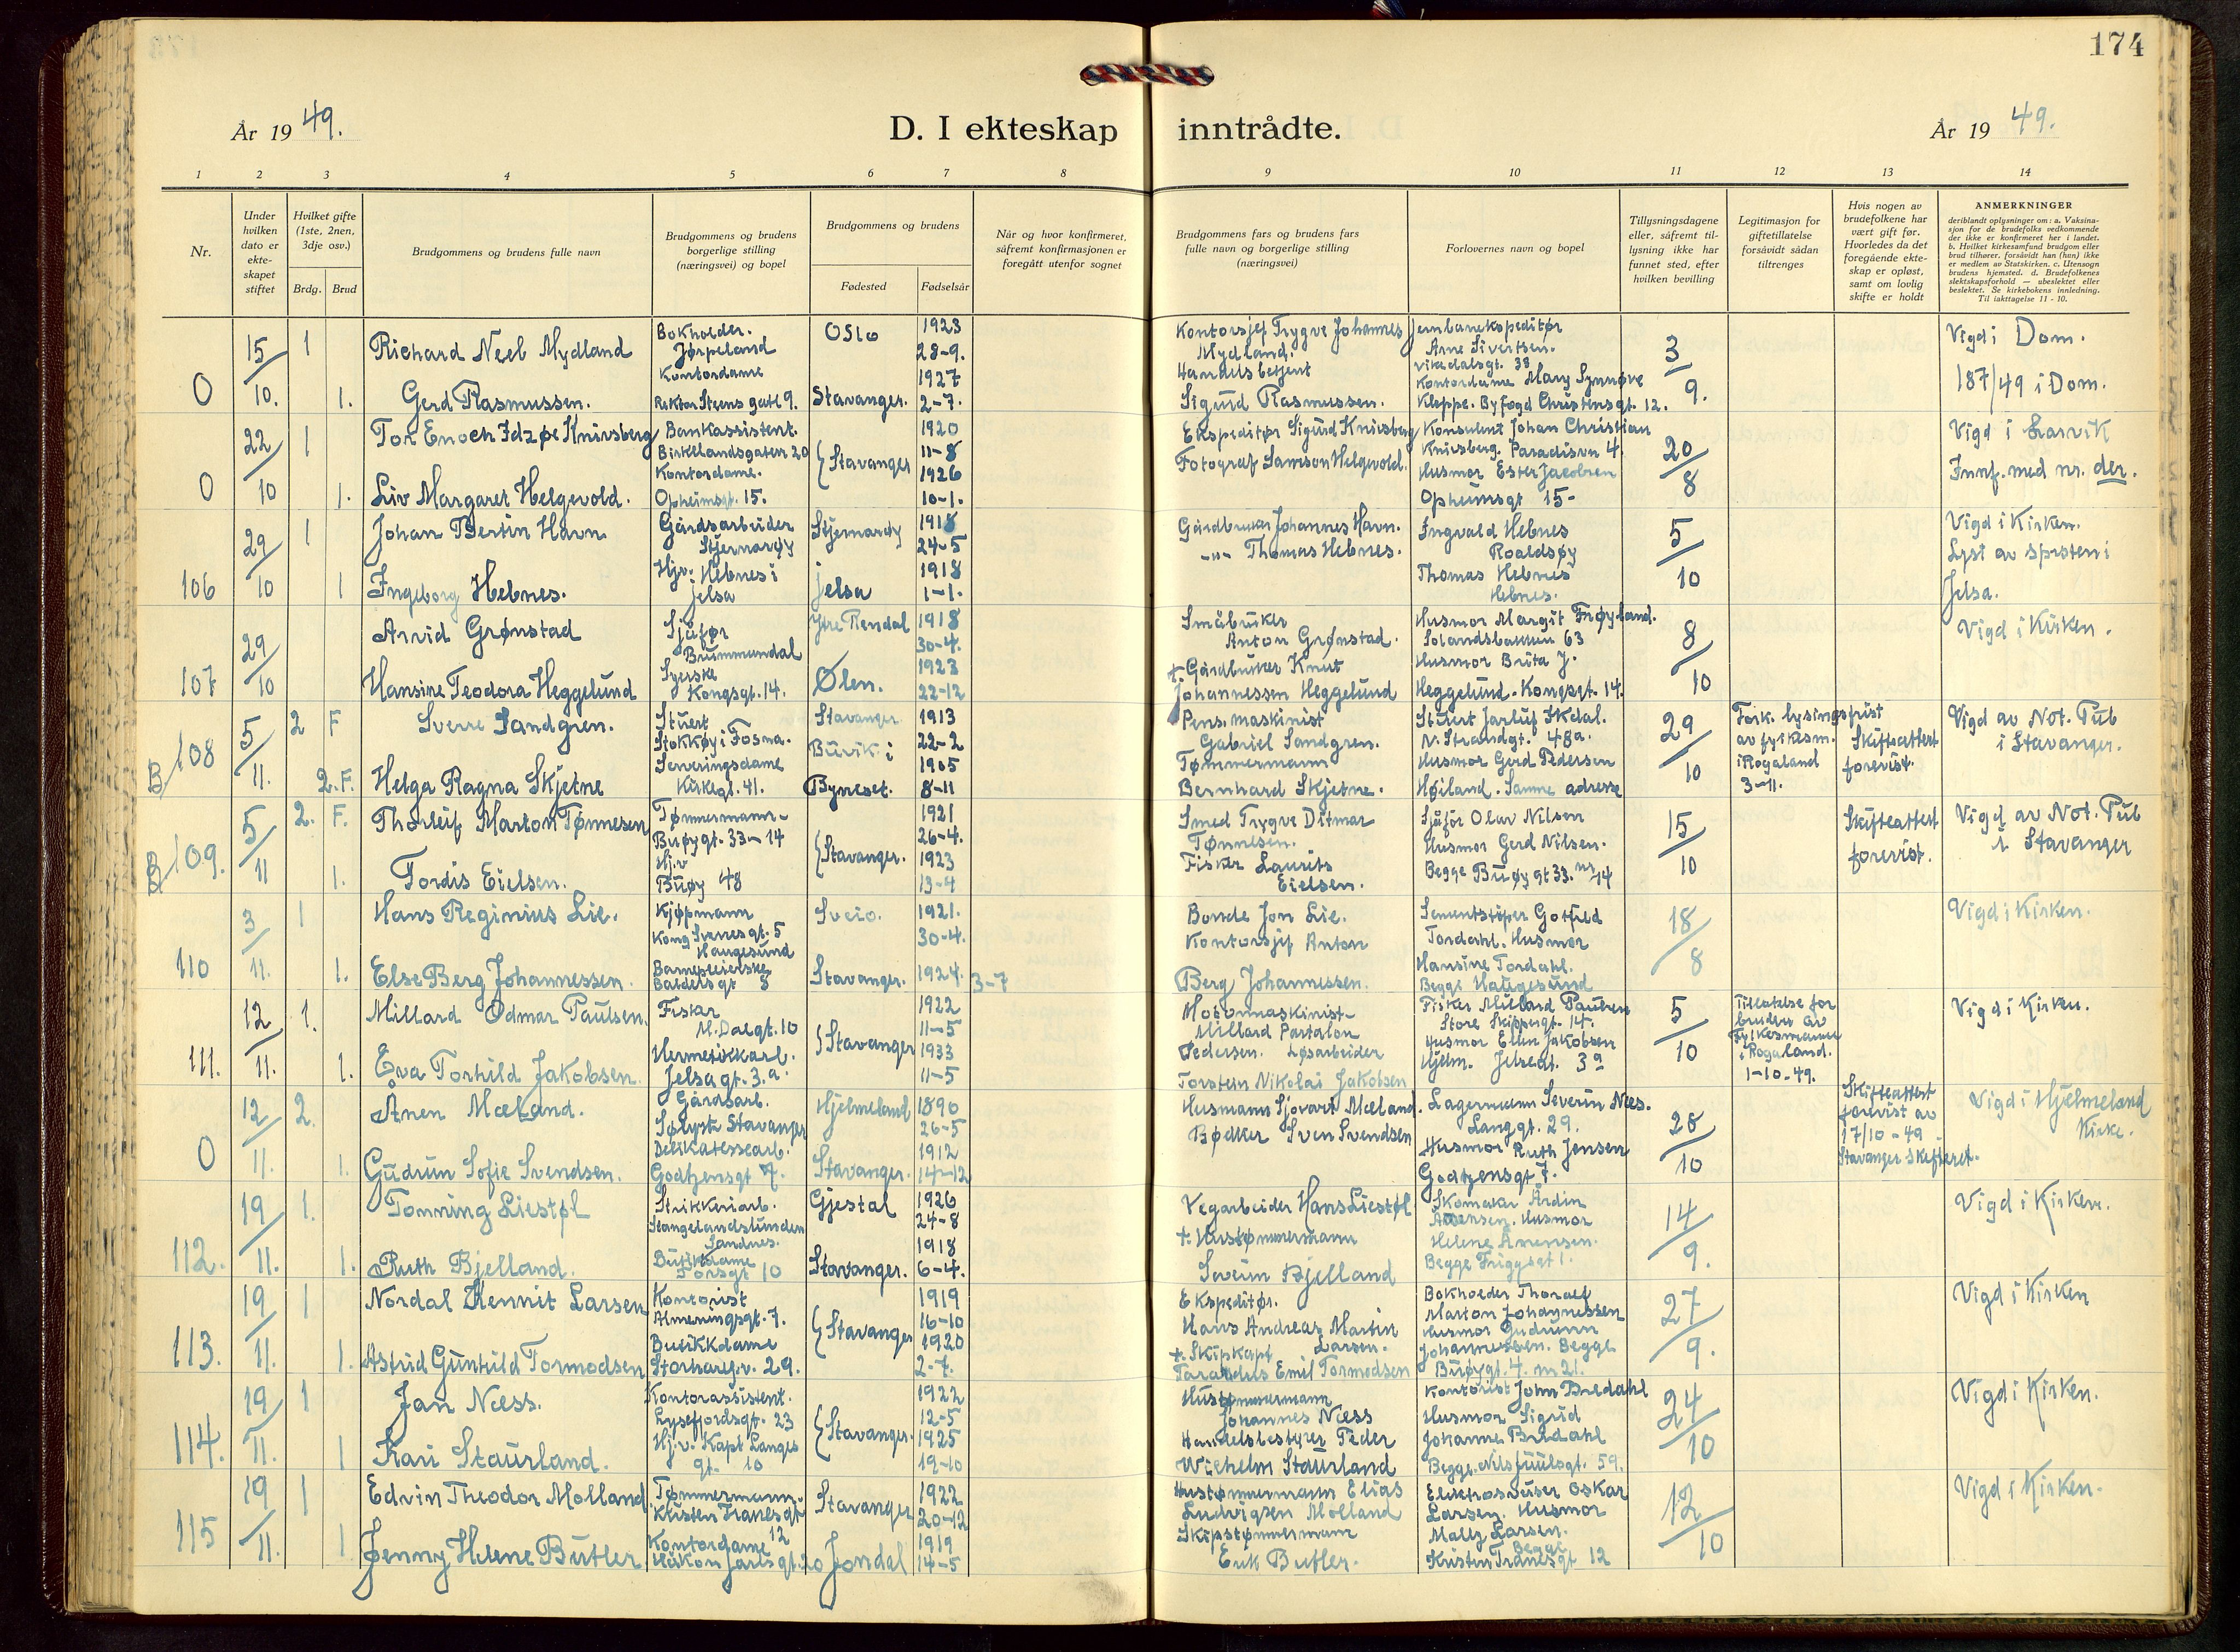 174
År 19 49.
D. I ekteskap inntrådte.
År 19 49.
1 2 3 4 5 6 7 8 9 10 11 12 13 14
Nr.
Under hvilken dato er ekte-skapet stiftet
Hvilket gifte (1ste, 2nen, 3dje osv.)
Brdg. Brud
Brudgommens og brudens fulle navn
Brudgommens og brudens borgerlige stilling (næringsvei) og bopel
Brudgommens og brudens
Fødested Fødselsår
Når og hvor konfirmeret, såfremt konfirmasjonen er foregått utenfor sognet
Brudgommens fars og brudens fars fulle navn og borgerlige stilling (næringsvei)
Forlovernes navn og bopel
Tillysningsdagene eller, såfremt til-lysning ikke har funnet sted, efter hvilken bevilling
Legitimasjon for giftetillatelse forsåvidt sådan tiltrenges
Hvis nogen av brudefolkene har vært gift før. Hvorledes da det foregående ekte-skap er opløst, samt om lovlig skifte er holdt
ANMERKNINGER
deriblandt oplysninger om: a. Vaksina-sjon for de brudefolks vedkommende der ikke er konfirmeret her i landet. b. Hvilket kirkesamfund brudgom eller brud tilhører, forsåvidt han (hun) ikke er medlem av Statskirken. c. Utensogn brudens hjemsted. d. Brudefolkenes slektskapsforhold — ubeslektet eller beslektet. Se kirkebokens innledning. Til iakttagelse 11 - 10.
0 15/10. 1 1.
Richard Neel Mydland
Gerd Rasmussen.
Bokholder.
Jørpeland
Kontordame
Rektor Steens gate 9.
Oslo
Stavanger.
1923
28-9.
1927
2-7.
Kontorsjef Trygve Johannes
Mydland.
Handelsbetjent
Sigurd Rasmussen.
Jernbaneekspeditør
Arne Sivertsen.
Vikedalsgt. 33
Kontordame Mary Synnøve
Kleppe. Byfogd Christensgt. 12.
3/9.
Vigd i Dom.
187/49 i Dom.
0 22/10 1 1.
Tor Enoch Idzøe Knivsberg
Liv Margaret Helgevold.
Bankassistent.
Birkelandsgaten 20
Kontordame.
Opheimsgt. 15.
Stavanger
1920
11-8
1926
10-1.
Ekspeditør Sigurd Knivsberg
Fotograf Samson Helgevold.
Konsulent Johan Christian
Knivsberg. Paradisvn 4.
Husmor Ester Jacobsen
Opheimsgt 15-
20/8
Vigd i Larvik
Innf. med nr. der.
106 29/10 1 1
Johan Bertin Havn
Ingeborg Hebnes.
Gårdsarbeider
Stjernarøy
Hjv. Hebnes i
Jelsa
Stjernarøy
Jelsa
1918
24-5
1918
1-1.
Gårdbruker Johannes Havn.
-"- Thomas Hebnes.
Ingvald Hebnes
Roaldsøy
Thomas Hebnes
Hebnes.
5/10
Vigd i Kirken.
Lyst av sprsten i
Jelsa.
107 29/10
Arvid Grønstad
Hansine Teodora Heggelund
Sjåfør
Brummundal
Syerske
Kongsgt. 14.
Ytre Rendal
Ølen.
1918
30-4.
1923
22-12
Småbruker
Anton Grønstad.
+ Gårdbruker Knut
Johannessen Heggelund
Husmor Margit Frøyland.
Solandsbakken 63
Husmor Brita J.
Heggelund. Kongsgt. 14.
8/10
Vigd i Kirken.
B/108 5/11. 2 F 2. F.
Sverre Sandgren.
Helga Ragna Skjetne
Stuert
Stokkøy i Fosna.
Serveringsdame
Kirkegt. 41.
Stavanger
Buvik i
Byneset.
1913
22-2
1905
8-11
Pens. maskinist
Gabriel Sandgren.
Tømmermann
Bernhard Skjetne.
Stuert Jarluf Ekdal.
N. Strandgt. 48a.
Husmor Gerd Pedersen
Høiland. Samme adresse
29/10
Fork. lysingsfrist
av fylkesm.
i Rogaland
3-11.
Skifteattest
forevist.
Vigd av Not. Pub
i Stavanger.
B/109. 5/11 2. F. 1.
Thorleif Marton Tønnesen
Tordis Eielsen.
Tømmermann-
Buøygt. 33-14
Hj.v
Buøy 48
Stavanger.
1921
26-4.
1923
13-4
Smed Trygve Ditmar
Tønnesen.
Fisker Laurits
Eielsen.
Sjåfør Olav Nilsen
Husmor Gerd Nilsen.
Begge Buøygt 33. nr 14
15/10
Skifteattest
forevist.
Vigd av Not. Pub
i Stavanger
110 3/11. 1 1.
Hans Reginius Lie.
Else Berg Johannessen.
Kjøpmann
Kong Sverres gt. 5
Haugesund
Barnepleierske
Baldersgt 8
Sveio.
Stavanger.
1921.
30-4.
1924. 3-7
Bonde Jon Lie.
Kontorsjef Anton
Berg Johannessen.
Sementstøper Gotfred
Tordahl. Husmor
Hansine Tordahl.
Begge Haugesund
18/8
Vigd i Kirken.
111. 12/11. 1. 1.
Millard Odmar Paulsen.
Eva Torhild Jakobsen.
Fisker
M. Dalgt. 10
Hermetikkarb.
Jelsagt. 3. a.
Stavanger
1922
11-5
1933
11-5
Motormaskinist-
Millard Pantalon
Pedersen. Løsarbeider
Torstein Nikolai Jakobsen
Fisker Millard Paulsen
Store Skippergt. 14.
Husmor Elin Jakobsen
Hjelm. Jelsagt. 3a
5/10
Tillatelse for
bruden av
Fylkesmannen
i Rogaland.
1-10-49.
Vigd i Kirken.
0 12/11. 2. 1.
Ånen Mæland.
Gudrun Sofie Svendsen.
Gårdsarb.
Sølyst Stavanger
Delikatessearb.
Godtzensgt 7.
Hjelmeland
Stavanger.
1890
26-5
1912
14-12
Husmann Sjovart Mæland.
Bødker Sven Svendsen
Lagermann Severin Næs.
Langgt. 29.
Husmor Ruth Jensen
Godtzensgt 7.
28/10
Skifteattest
forevist av
17/10-49
Stavanger Skifteret.
Vigd i Hjelmeland
Kirke.
112. 19/11. 1. 1.
Tonning Liestøl
Ruth Bjelland.
Strikkeriarb.
Stangelandslunden
Sandnes.
Butikkdame
Torsgt 10
Gjestal
Stavanger.
1926
24-8
1918
6-4.
Vegarbeider Hans Liestøl
+. Hustømmermann
Sveinn Bjelland
Skomaker Ardin
Anensen. Husmor
Helene Anensen.
Begge Friggset 1.
14/9.
Vigd i Kirken.
113. 19/11. 1 1.
Nordal Kennit Larsen
Astrid Gunhild Tormodsen
Kontorist
Almeningsgt. 7.
Butikkdame
Storhaugv. 29.
Stavanger
1919
16-10
1920
2-7.
Ekspeditør.
Hans Andreas Martin
Larsen.
+. Skipskapt
Emil Tormodsen
Bokholder Thoralf
Marton Johannessen
Husmor Gudrunn
Johannessen. Begge
Buøygt. 4. m 21.
27/9.
Vigd i Kirken
114. 19/11. 1 1
Jan Næss.
Kari Staurland.
Kontorassistent.
Lysefjordsgt. 23
Hj.v. Kapt Langes
gt. 10
Stavanger.
1922
12-5
1925
19-10
Hustømmermann
Johannes Næss
Handelsbestyrer Peder
Wilhelm Staurland
Kontorist John Bredahl
Husmor Sigrid
Johanne Bredahl
Begge. Nils Juulsgt. 59.
24/10
Vigd i Kirken.
115 19/11. 1 1
Edvin Theodor Molland
Jenny Helene Butler
Tømmermann.
Kristen Tranesgt
12
Kontordame
Håkon Jarlsgt. 20
Stavanger
Jondal
1922
20-12
1919
14-5
Hustømmermann Elias
Ludvigsen Molland
Skipstømmermann
Erik Butler.
Elektrosveiser Oskar
Larsen. Husmor
Mally Larsen.
Begge
Kristen Tranesgt 12
12/10
Vigd i Kirken.